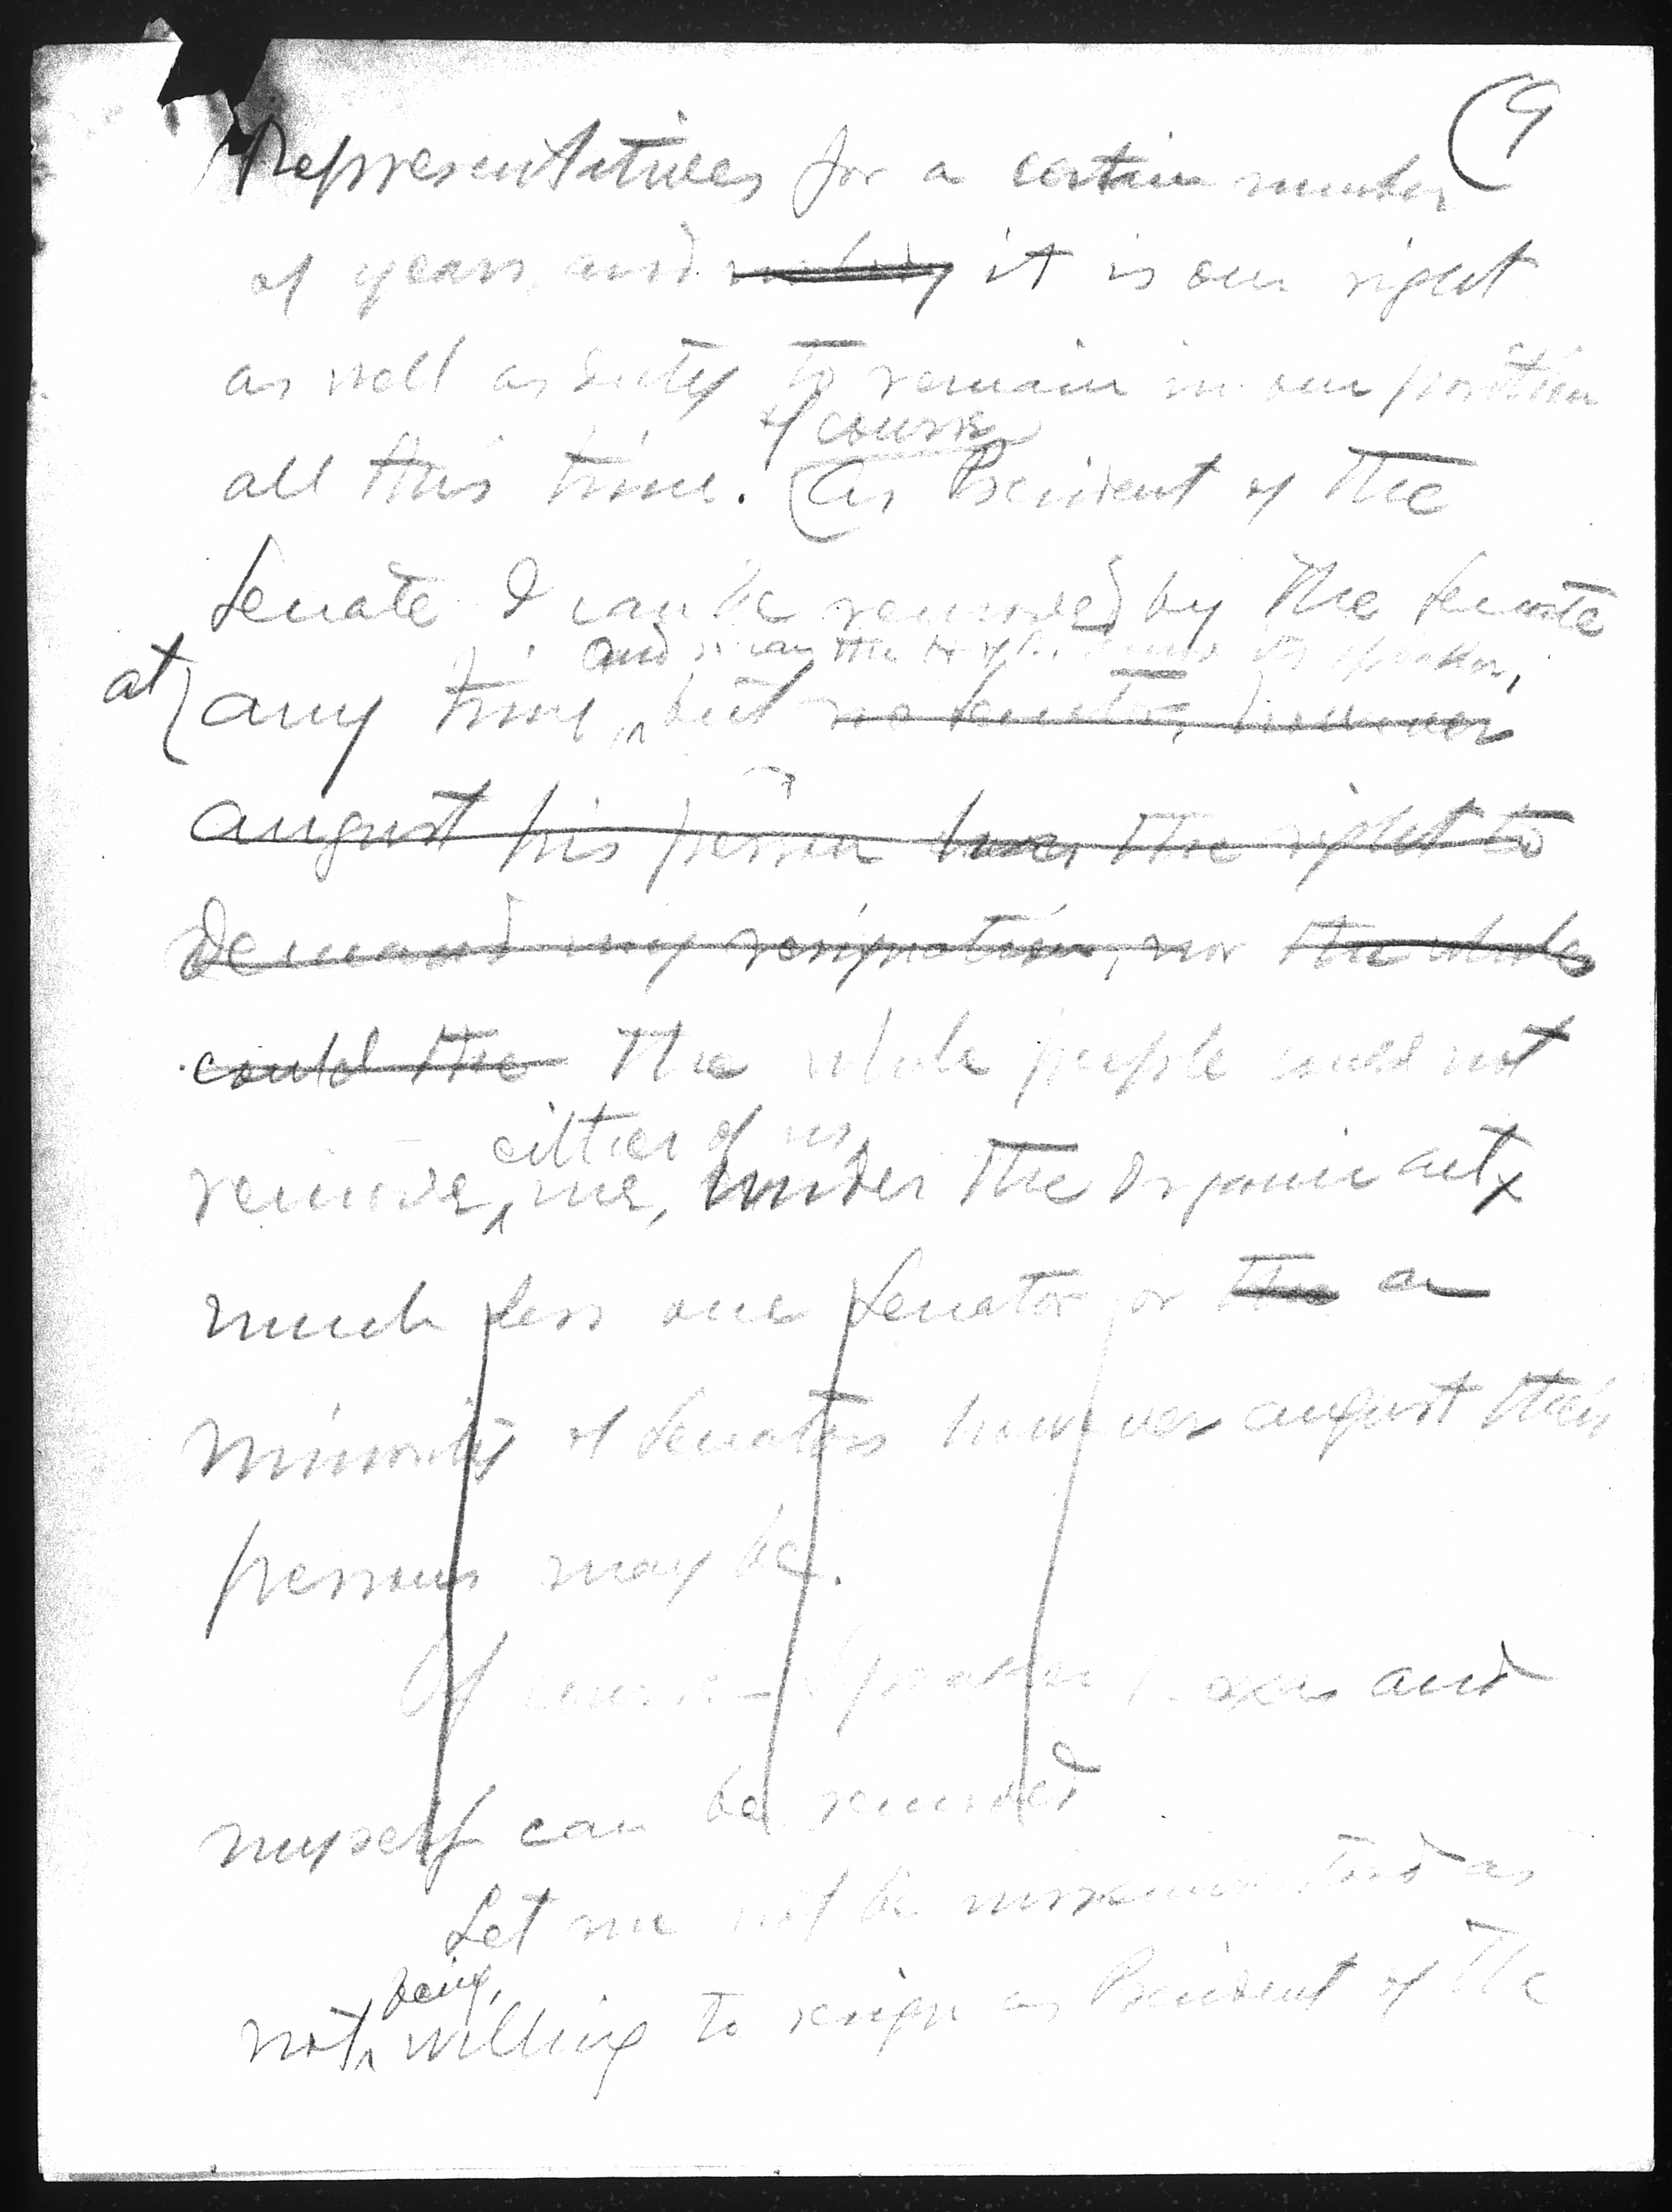 (9
Representatives for a certain number
of years, and nobody it is our right
as well as duty to remain in our position
of course
all this time. (As President of the
Senate I can be removed by the Senate
and can the its speaker,
at any time, but no senator, however
august his person has the right to
demand my resignation, nor the whole
could the The whole people could not
either of us
remove, me, under the organic act
much less one Senator or the a
minority of Senators however august their
persons may be.
Of course Speaker and
myself can be removed
Let me not be misunderstood as
being,
not willing to resign as President of the